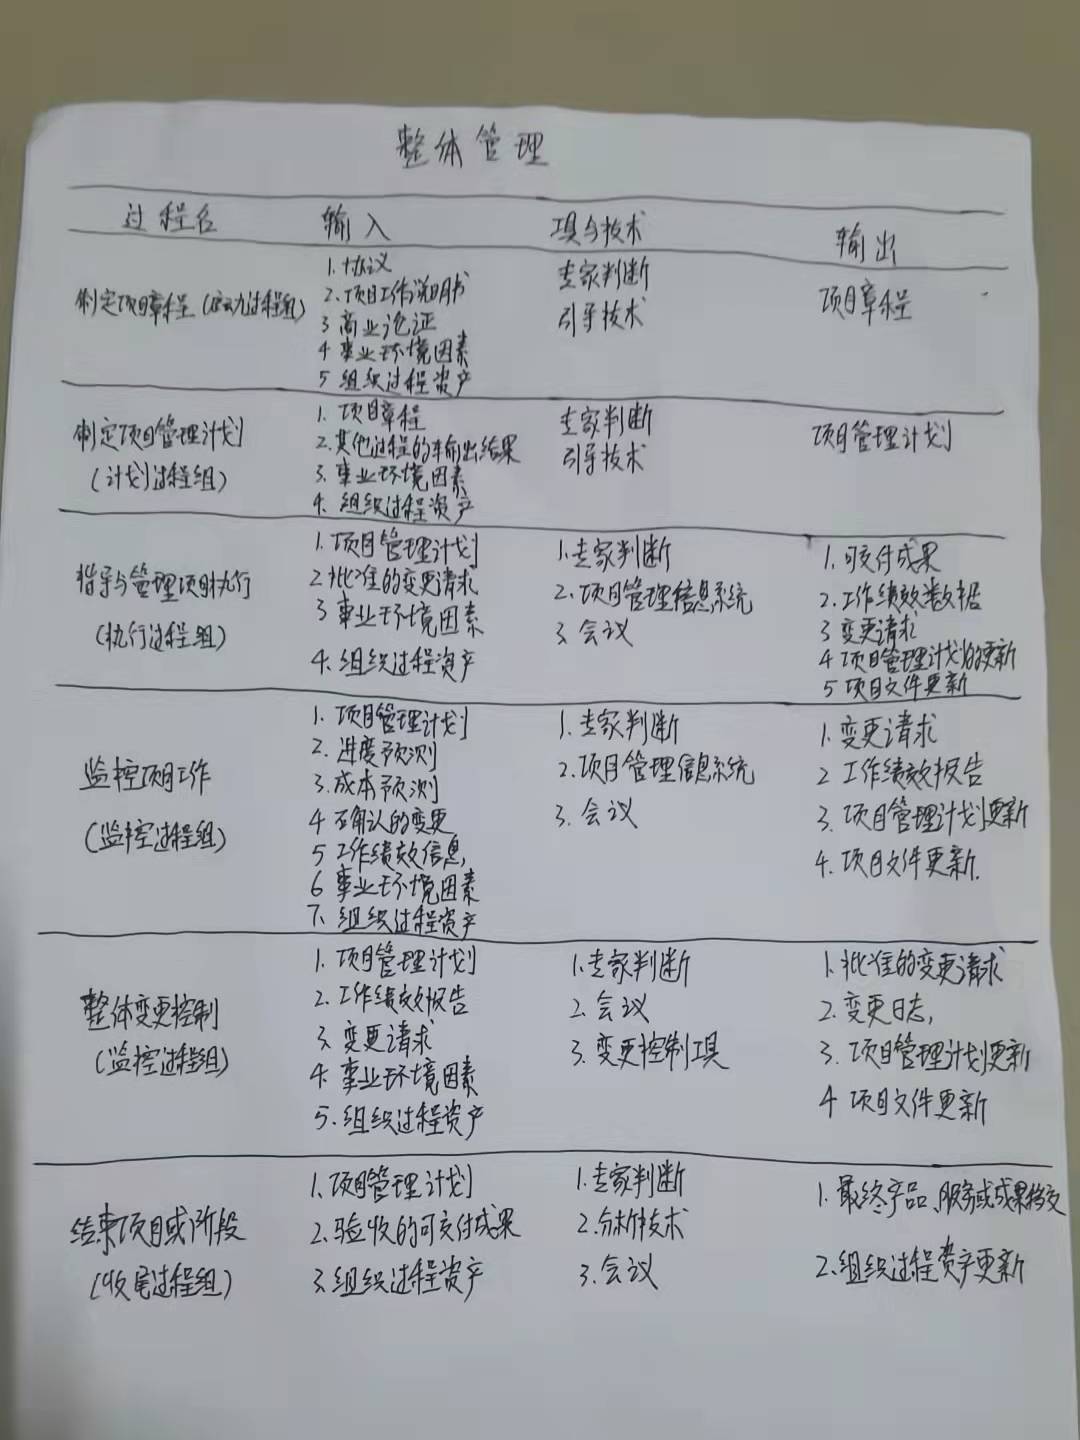 整体管理
过程名 输入 工具与技术 输出
制定项目章程（启动过程组）
1. 协议
2. 项目工作说明书
3 商业论证
4 事业环境因素
5 组织过程资产
专家判断
引导技术
项目章程
制定项目管理计划
（计划过程组）
1. 项目章程
2. 其他过程的输出结果
3. 事业环境因素
4. 组织过程资产
专家判断
引导技术
项目管理计划
指导与管理项目执行
（执行过程组）
1. 项目管理计划
2 批准的变更请求
3 事业环境因素
4. 组织过程资产
1. 专家判断
2. 项目管理信息系统
3. 会议
1. 可交付成果
2. 工作绩效数据
3 变更请求
4 项目管理计划的更新
5 项目文件更新
监控项目工作
（监控过程组）
1. 项目管理计划
2. 进度预测
3. 成本预测
4 确认的变更
5 工作绩效信息,
6 事业环境因素
7. 组织过程资产
1. 专家判断
2. 项目管理信息系统
3. 会议
1. 变更请求
2 工作绩效报告
3. 项目管理计划更新
4. 项目文件更新.
整体变更控制
（监控过程组）
1. 项目管理计划
2. 工作绩效报告
3. 变更请求
4. 事业环境因素
5. 组织过程资产
1. 专家判断
2. 会议
3. 变更控制工具
1. 批准的变更请求
2. 变更日志,
3. 项目管理计划更新
4 项目文件更新
结束项目或阶段
（收尾过程组）
1. 项目管理计划
2. 验收的可交付成果
3. 组织过程资产
1. 专家判断
2. 分析技术
3. 会议
1. 最终产品、服务或成果移交
2. 组织过程资产更新